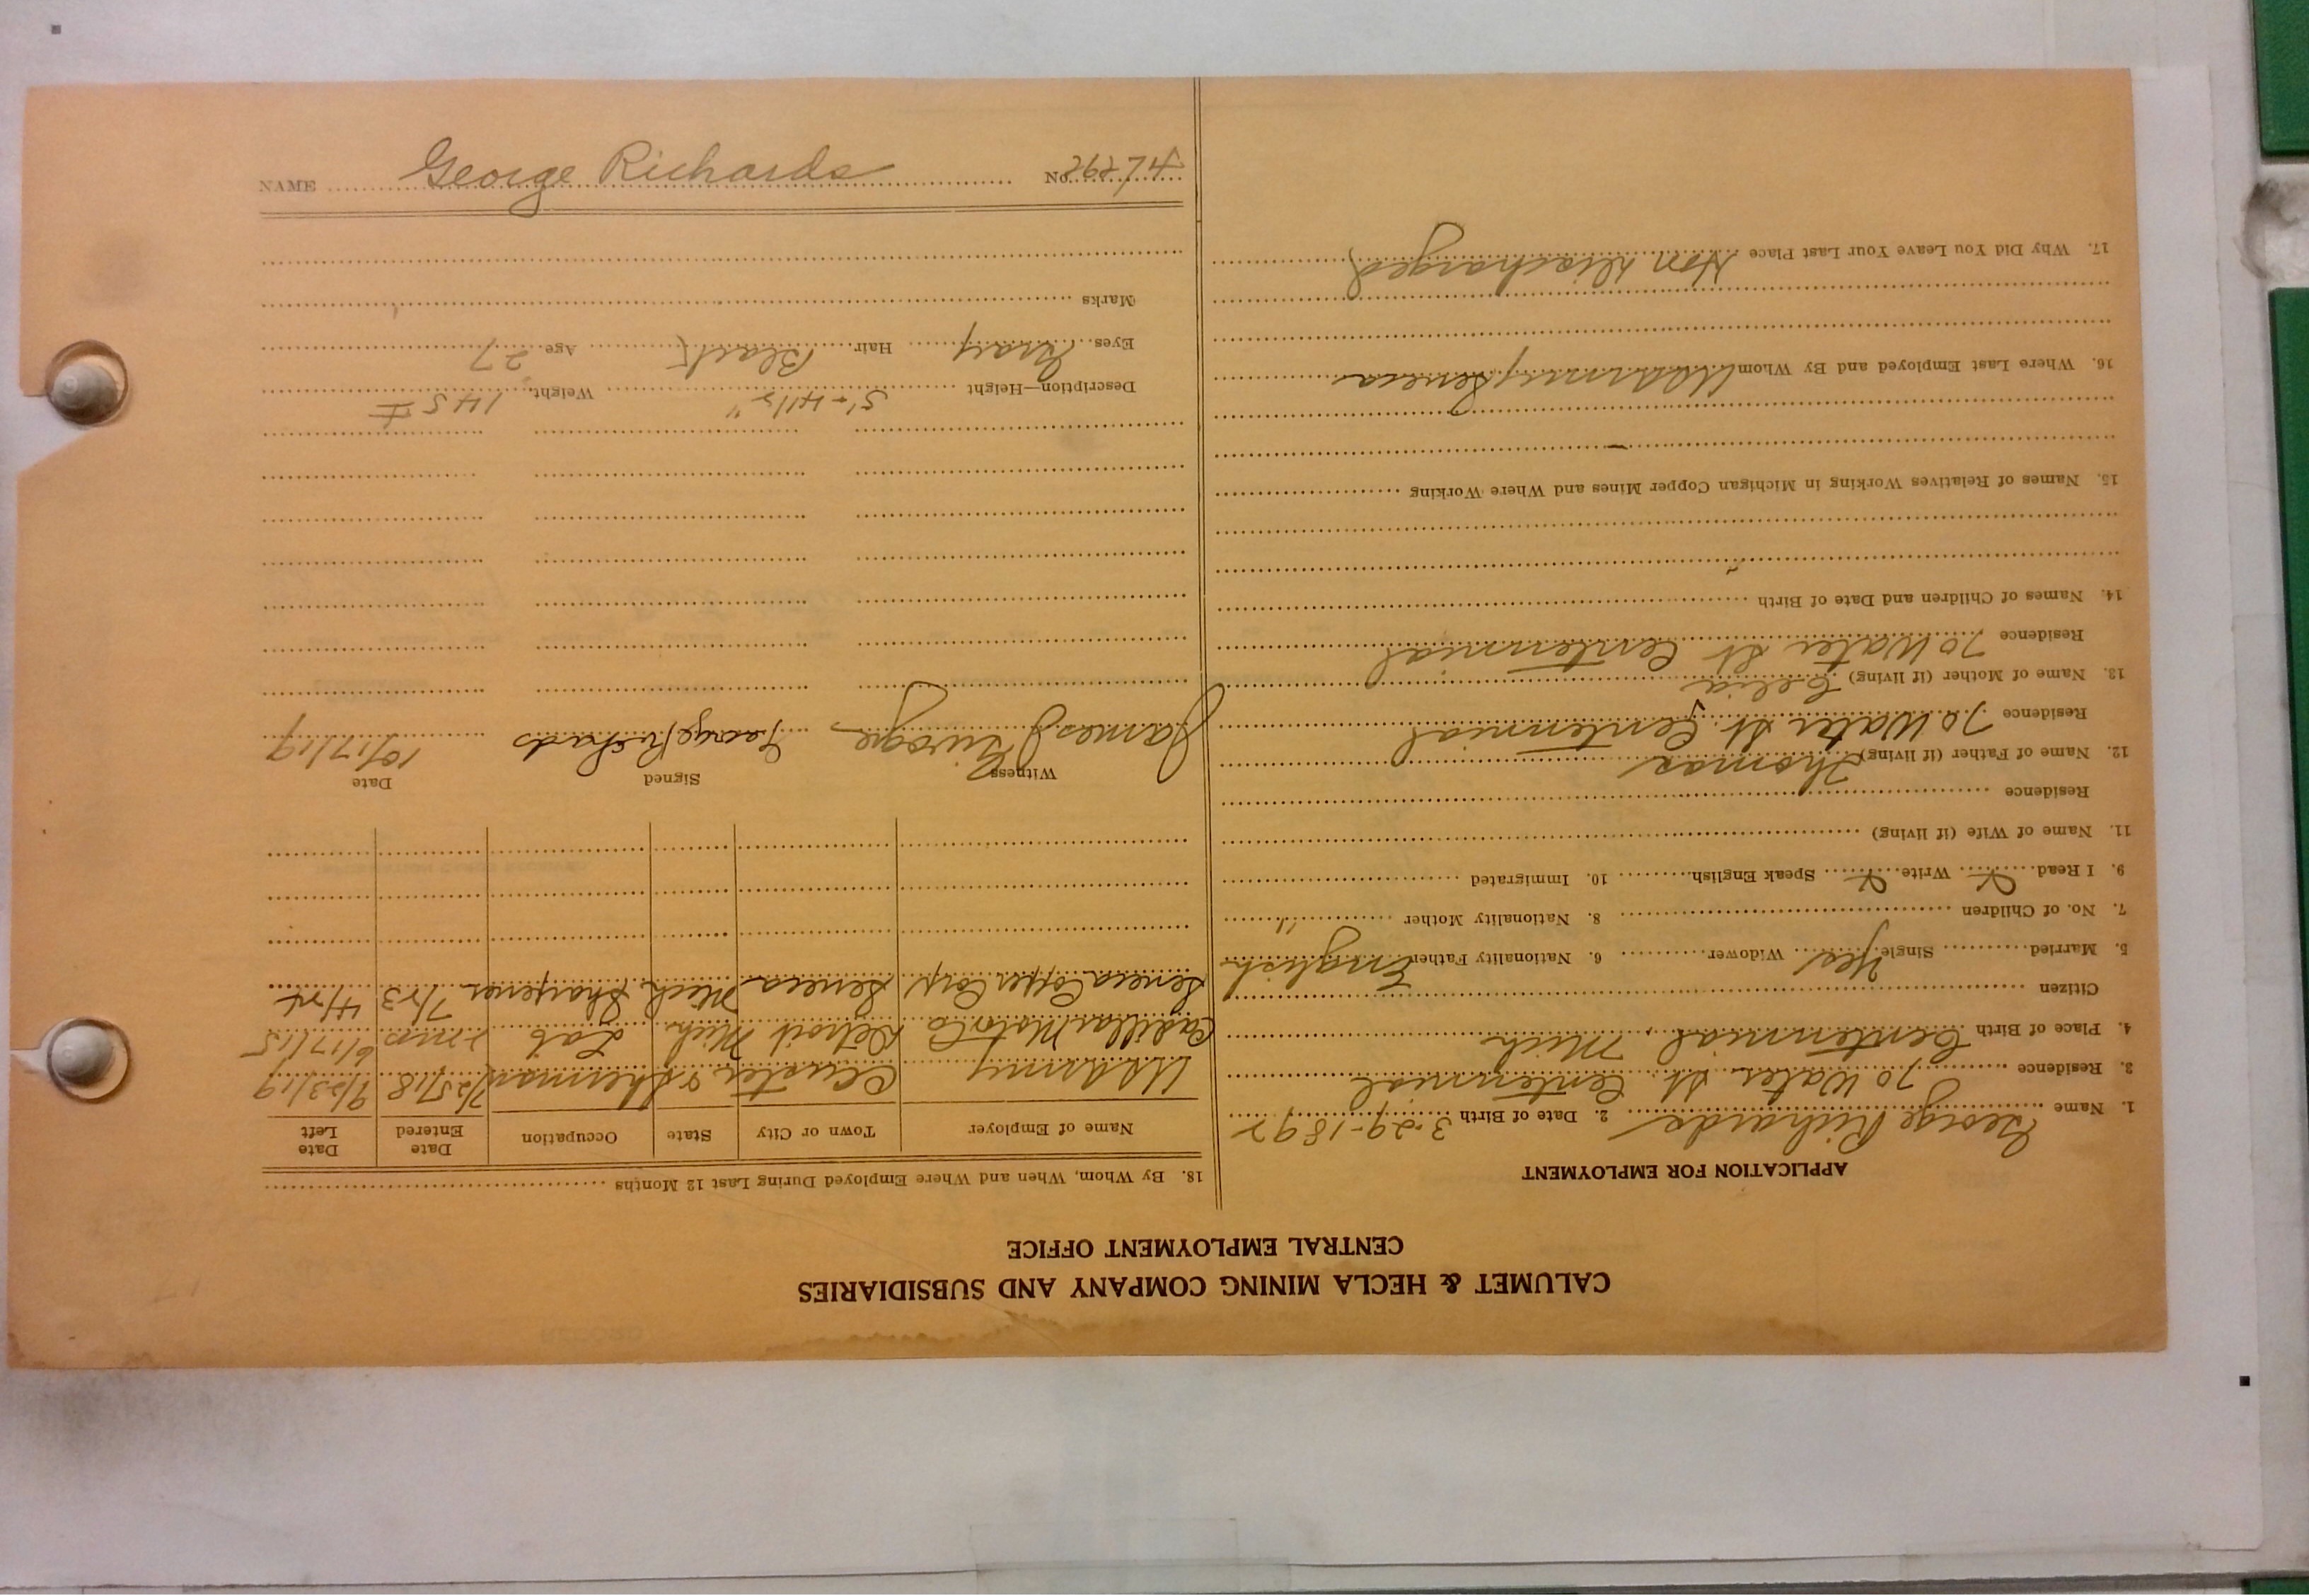 CALUMET & HECLA MINING COMPANY AND SUBSIDIARIES
CENTRAL EMPLOYMENT OFFICE
APPLICATION FOR EMPLOYMENT
1. Name George Richards 2. Date of Birth 3-29-1892
3. Residence 70 Water St. Centennial
4. Place of Birth Centennial, Mich
Citizen
5. Married Single Yes Widower 6. Nationality Father English
7. No. of Children 8. Nationality Mother "
9. I Read X Write X Speak English 10. Immigrated
11. Name of Wife (if living)
Residence
12. Name of Father (if living) Thomas
Residence 70 Water St. Centennial
13. Name of Mother (if living) Celia
Residence 70 Water St Centennial
14. Names of Children and Date of Birth
15. Names of Relatives Working in Michigan Copper Mines and Where Working
16. Where Last Employed and By Whom US Army Seneca
17. Why Did You Leave Your Last Place Hon Discharged
18. By Whom, When and Where Employed During Last 12 Months
Name of Employer Town or City State Occupation Date Entered Date Left
US Army Custer & Sherman 7/25/18 9/23/19
Cadillac Motor Co Detroit Mich. Lab 6/17/15
Seneca Copper Corp Seneca Mich Sharpener
Witness Signed Date
James J George Richards 10/17/19
Description—Height Weight 145
Eyes Gray Hair Black Age 27
Marks
NAME George Richards NO. 26274